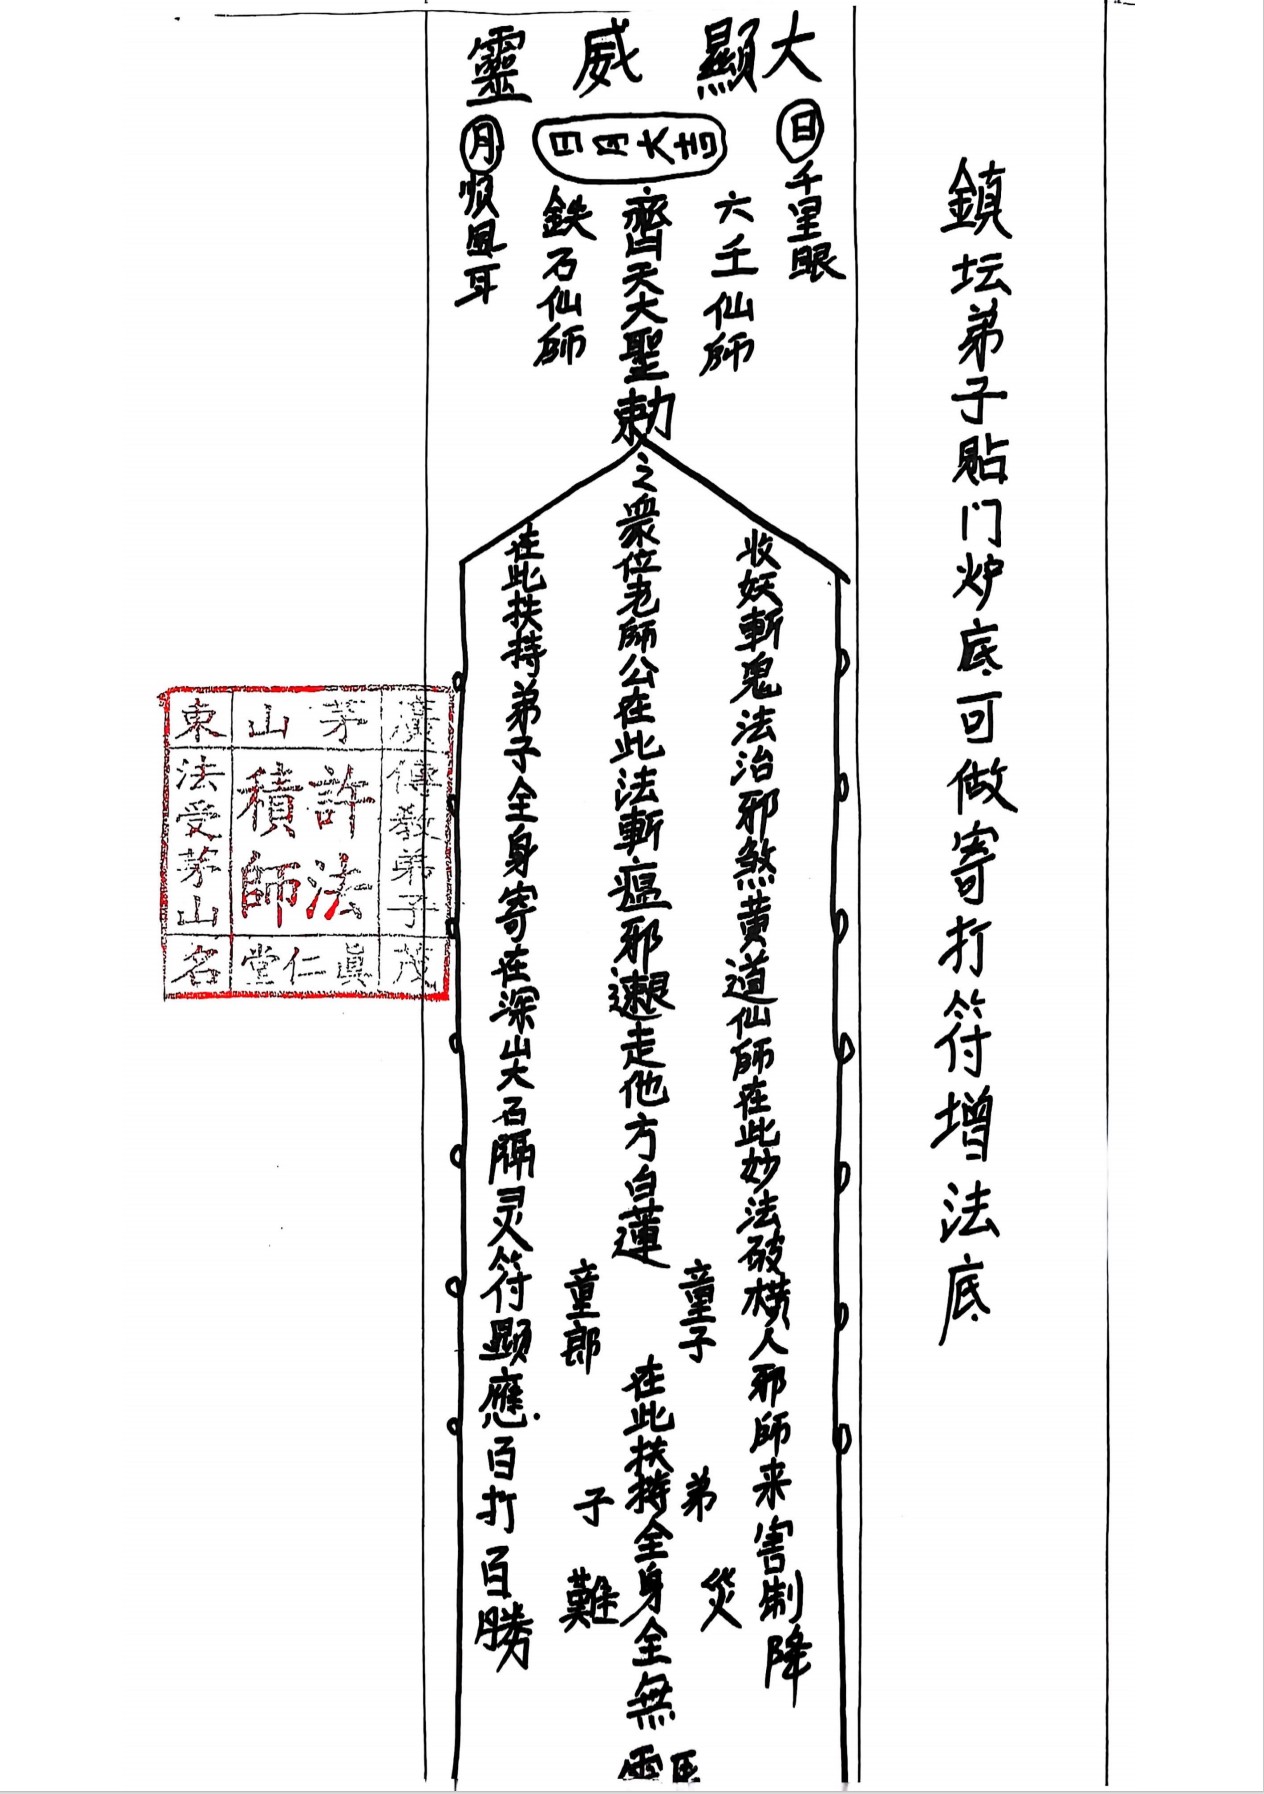 鎮坛弟子貼门炉底可做寄打符增法底
大顯威靈
日千里眼
六壬仙師
日月大吉
齊天大聖勅
鉄石仙師
月順風耳
收妖斬鬼法治邪煞黄道仙師在此妙法破横人邪師来害制降
之衆位老師公在此法斬瘟邪速退走他方白蓮
童子
童郎
在此扶持全身全無
弟子
災難
在此扶持弟子全身寄在深山大石隔灵符顕應百打百勝
廣傳教弟子茂
茅山
許法
積師
真仁堂
東法受茅山名